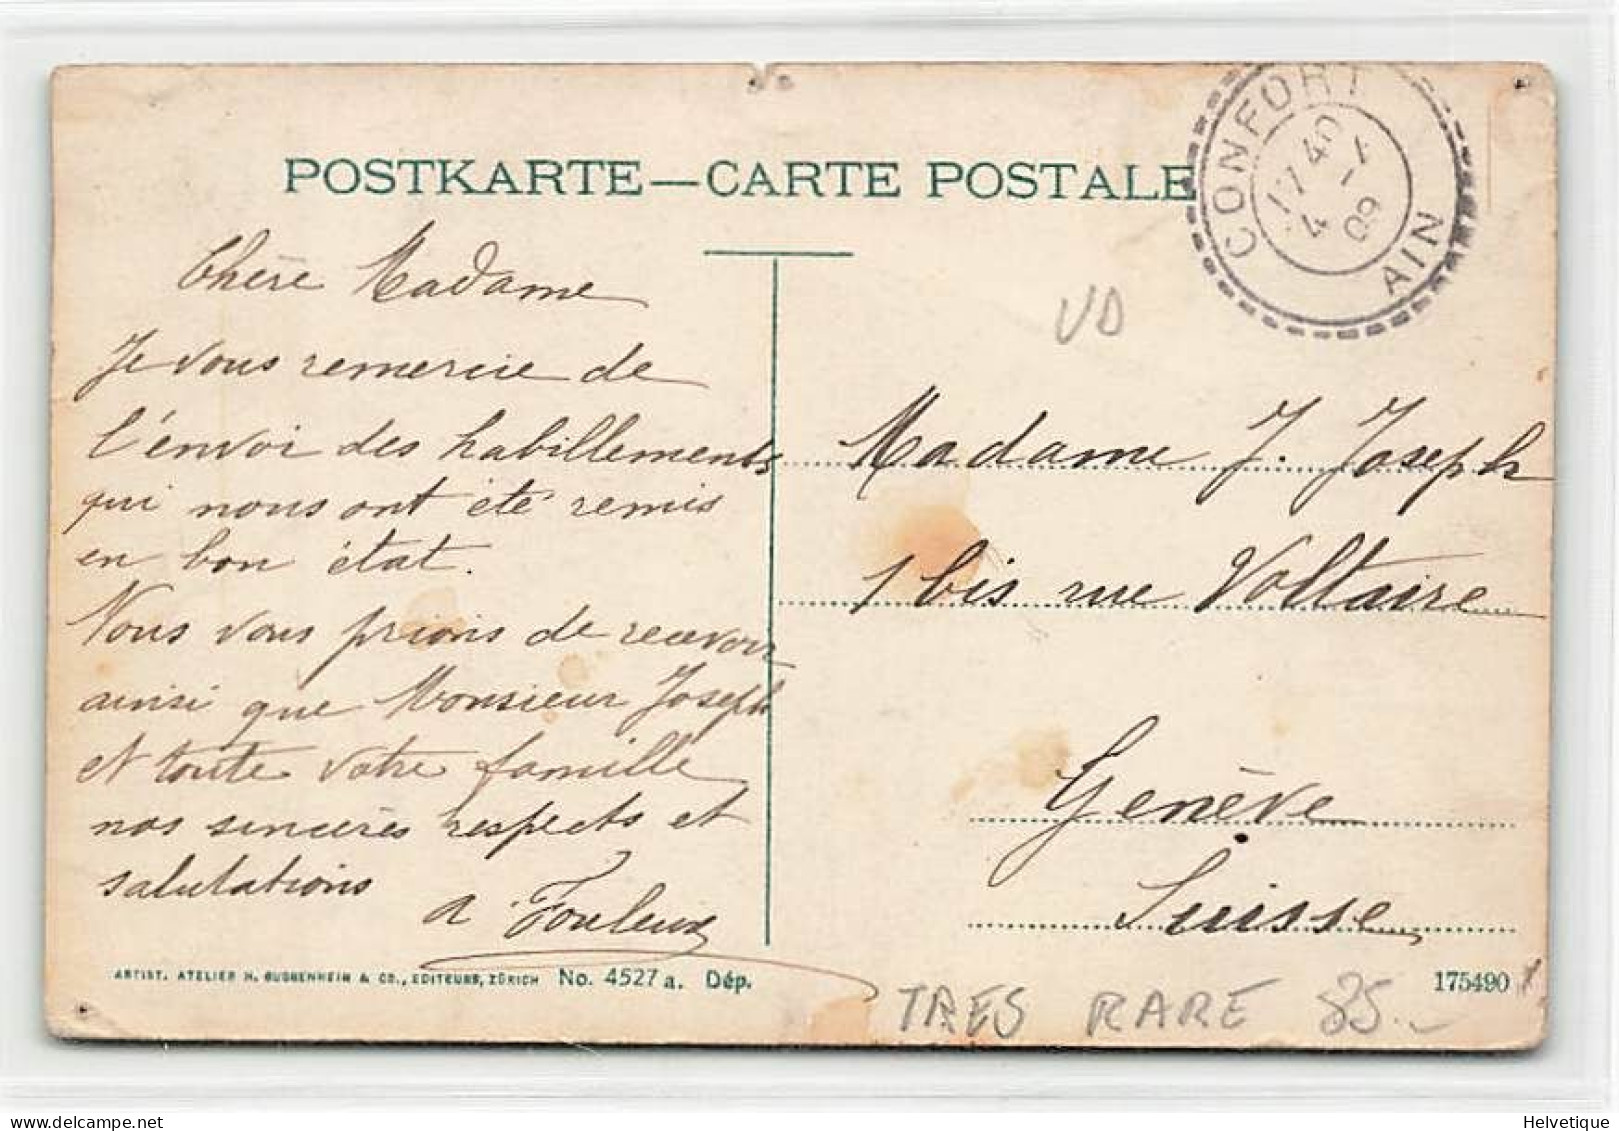 POSTKARTE — CARTE POSTALE
CONFORT
17 40
4 - 1
09
AIN
VD
Chère Madame
Je vous remercie de
l'envoi des habillements
qui nous ont été remis
en bon état.
Nous vous prions de recevoir
ainsi que Monsieur Joseph
et toute votre famille
nos sincères respects et
salutations
Madame J. Joseph
1 bis rue Voltaire
Genève
Suisse
ARTIST. ATELIER H. GUGGENHEIM & CO., EDITEURS, ZÜRICH No. 4527 a. Dép.
175490
TRES RARE 85.-
Helvetique